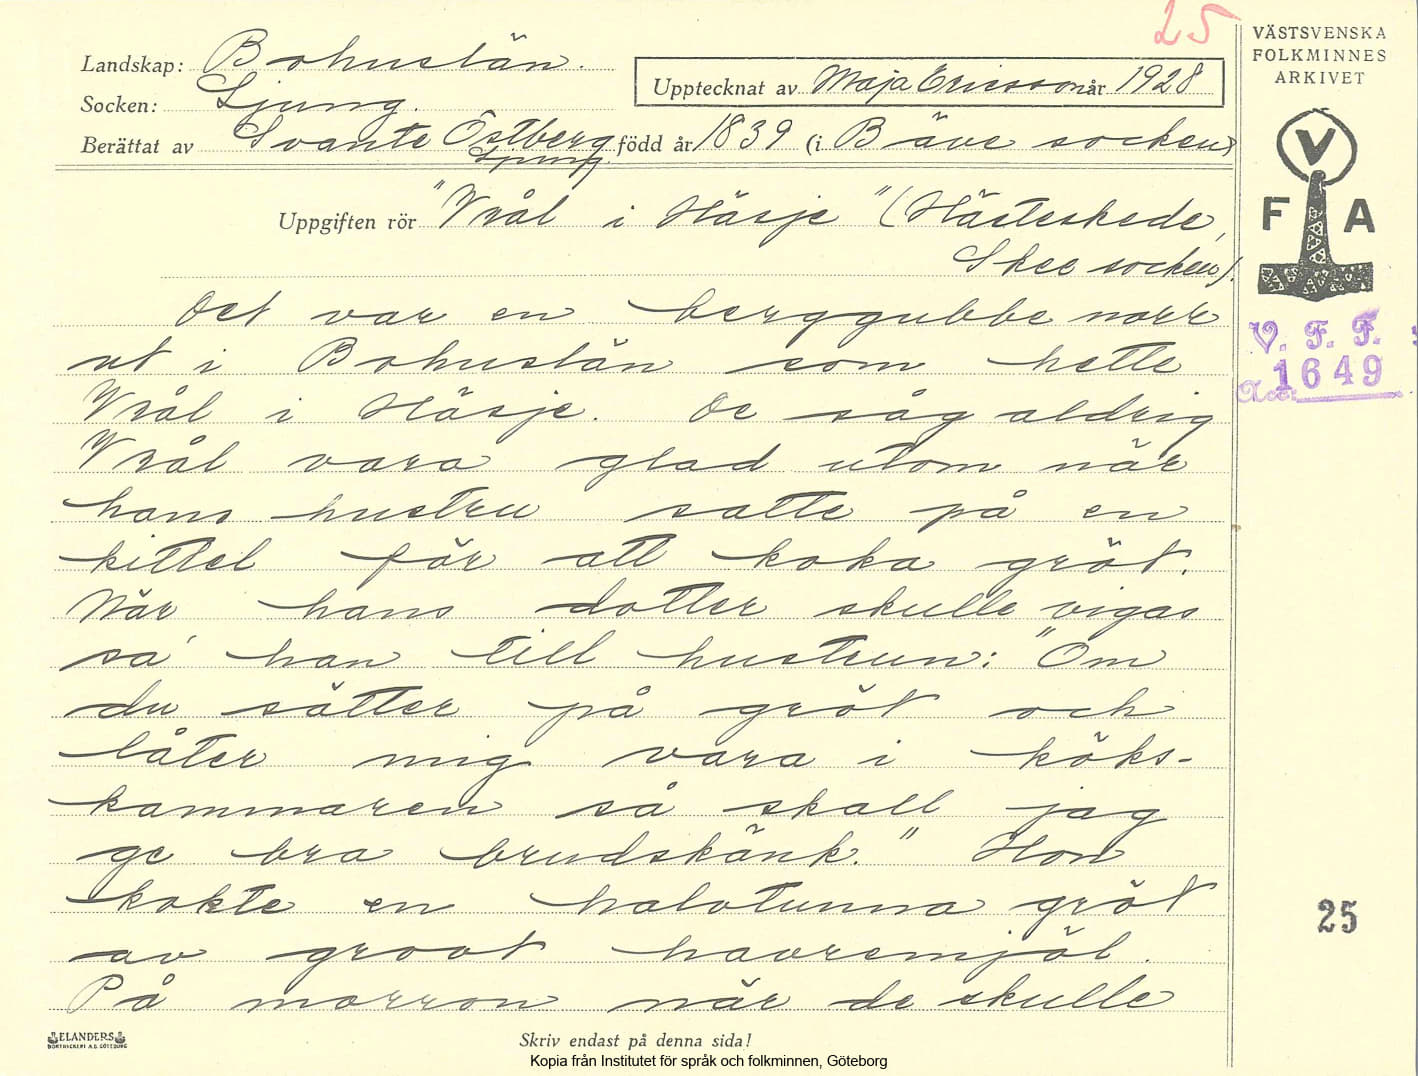 25
Landskap: Bohuslän.
Socken: Ljung.
Upptecknat av Maja Ericsson år 1928
Berättat av Svante Östberg född år 1839 (i Bäve socken)
Ljung.
Uppgiften rör "Vrål i Häsje" (Hästeskede,
Skee socken).
Det var en berggubbe norr
ut i Bohuslän som hette
Vrål i Häsje. De såg aldrig
Vrål vara glad utom när
hans hustru satte på en
kittel för att koka gröt.
När hans dotter skulle vigas
sa' han till hustrun: "Om
du sätter på gröt och
låter mig vara i köks-
kammaren så skall jag
ge bra brudskänk." Hon
kokte en halvtunna gröt
av grovt havremjöl.
På morron när de skulle
VÄSTSVENSKA
FOLKMINNES
ARKIVET
V
F A
V. F. F.
Acc: 1649
25
ELANDERS
BOKTRYCKERI A.B. GÖTEBORG
Skriv endast på denna sida!
Kopia från Institutet för språk och folkminnen, Göteborg